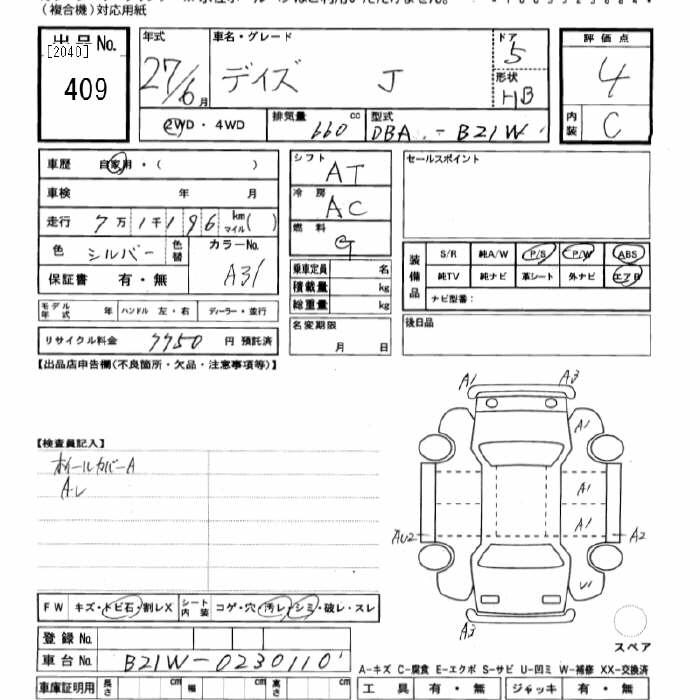 (複合機)対応用紙
出品No. [2040] 409
年式 27/6月 車名・グレード デイズ J ドア 5 形状 HB
評価点 4 内装 C
2WD・4WD 排気量 660 cc 型式 DBA-B21W
車歴 自家用・( )
車検 年 月
走行 7万1千196 km マイル( )
色 シルバー 色替 カラーNo. A31
保証書 有・無
シフト AT
冷房 AC
燃料 G
乗車定員 名
積載量 kg
総重量 kg
セールスポイント
装備品 S/R 純A/W P/S P/W ABS
純TV 純ナビ 革シート 外ナビ エアB
ナビ型番:
モデル年式 年 ハンドル 左・右 ディーラー・並行
名変期限 月 日
後日品
リサイクル料金 7750 円 預託済
【出品店申告欄(不良箇所・欠品・注意事項等)】
【検査員記入】
ホイールカバーA
A-レ
A1 A3
A1
A1
A1
AU2 A2
A3
スペア
FW キズ・トビ石・割レX シート内装 コゲ・穴・汚レ・シミ・破レ・スレ
登録No.
車台No. B21W-0230110
A-キズ C-腐食 E-エクボ S-サビ U-凹ミ W-補修 XX-交換済
車庫証明用 長さ cm 幅 cm 高さ cm 工具 有・無 ジャッキ 有・無